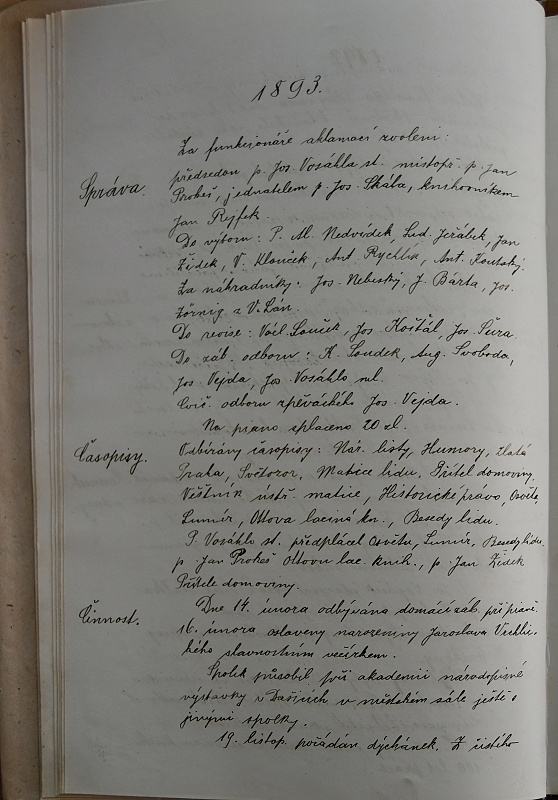 1893.
Za funkcionáře aklamací zvoleni:
Správa.
předsedou p. Jos. Vosáhla st. místopř. p. Jan
Probeš, jednatelem p. Jos. Skába, knihovníkem
Jan Rejfek.
Do výboru: P. Al. Nedvídek, Lud. Jeřábek, Jan
Židek, V. Klouček, Ant. Rychlík, Ant. Koutský.
Za náhradníky: Jos. Nebeský, J. Bárta, Jos.
a V. Lán.
Do revise: Václ. Souček, Jos. Košťál, Jos. Šura.
Do záb. odboru: K. Soudek, Aug. Svoboda,
Jos. Vejda, Jos. Vosáhlo ml.
odboru zpěváckého Jos. Vejda.
Na piano splaceno 20 zl.
Časopisy.
Odbírány časopisy: Nár. listy, Humory, Zlatá
Praha, Světozor, Matice lidu, Přítel domoviny,
Věštník ústř. matice, Historické právo, Osvěta,
Lumír, Ottova laciná kn., Besedy lidu.
P. Vosáhlo st. předplácel Osvětu, Lumír, Besedy lidu
p. Jan Probeš Ottovu lac. knih., p. Jan Židek
Přítele domoviny.
Činnost.
Dne 14. února odbývána domácí záb. při pivě.
16. února oslaveny narozeniny Jaroslava Vrchlic-
kého slavnostním večírkem.
Spolek působil při akademii národopisné
výstavky v Dašicích v městském sále ještě s
jinými spolky.
19. listop. pořádán dýchánek. Z čistého